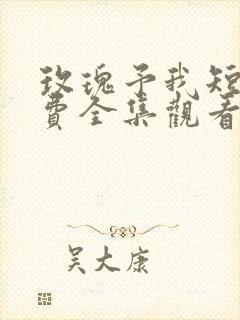 玫瑰予我短
費全集觀看
吴大康